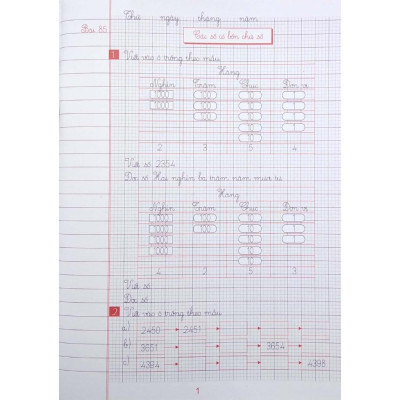 Thứ ngày tháng năm
Bài 85
Các số có bốn chữ số
1 Viết vào ô trống theo mẫu
Hàng
Nghìn Trăm Chục Đơn vị
1000 100 10 1
1000 100 10 1
100 10 1
10 1
10
2 3 5 4
Viết số: 2354
Đọc số: Hai nghìn ba trăm năm mươi tư
Hàng
Nghìn Trăm Chục Đơn vị
1000 100 10 1
1000 100 10 1
1000 10 1
1000 10
10
4 2 5 3
Viết số:
Đọc số:
2 Viết vào ô trống theo mẫu
a) 2450 → 2451 → → →
b) 3651 → → → 3654 →
c) 4394 → → → → 4398
1